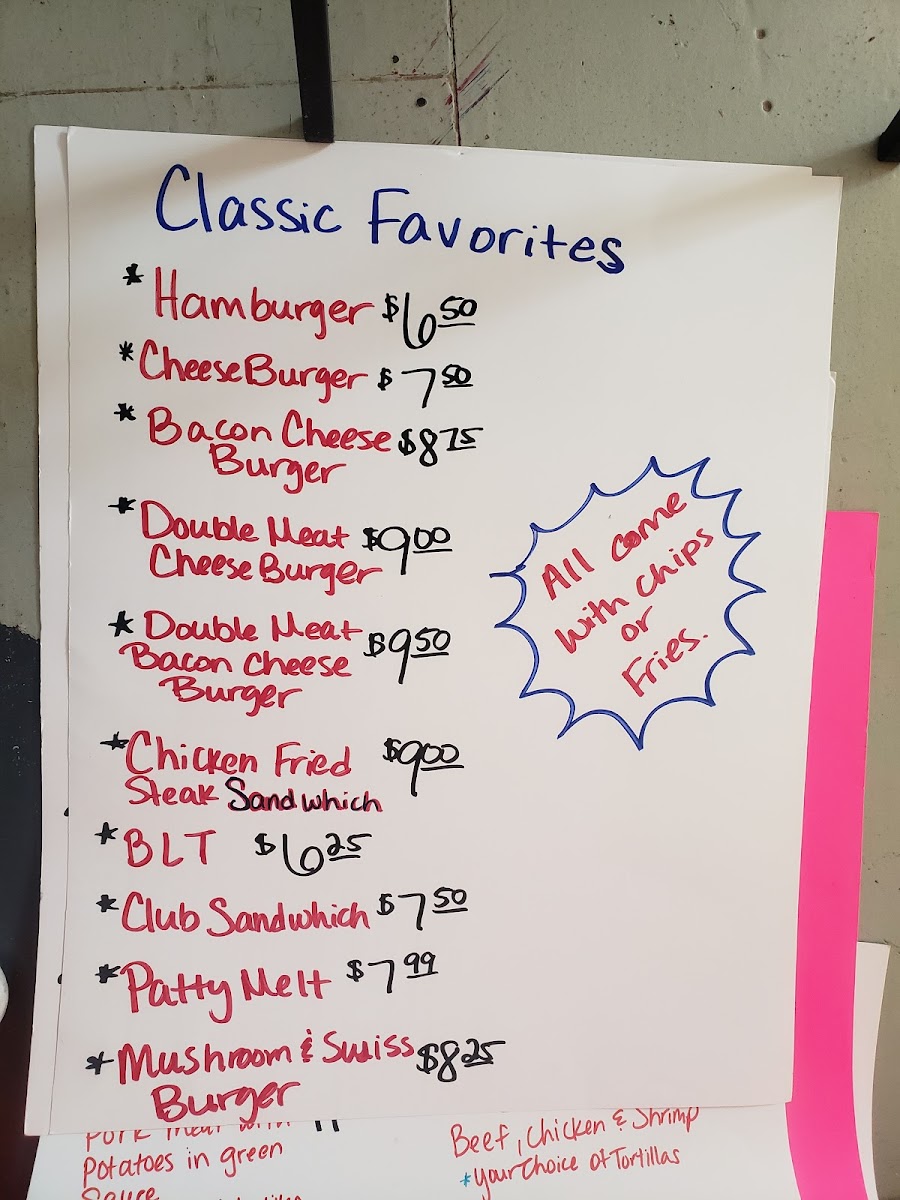 Classic Favorites
* Hamburger $6.50
* CheeseBurger $7.50
* Bacon Cheese $8.75
Burger
* Double Meat $9.00
CheeseBurger
* Double Meat $9.50
Bacon Cheese
Burger
* Chicken Fried $9.00
Steak Sandwhich
* BLT $6.25
* Club Sandwhich $7.50
* Patty Melt $7.99
* Mushroom & Swiss $8.25
Burger
All come
with chips
or
Fries.
Pork meat with
Potatoes in green
Sauce
Beef, Chicken & Shrimp
*Your Choice of Tortillas